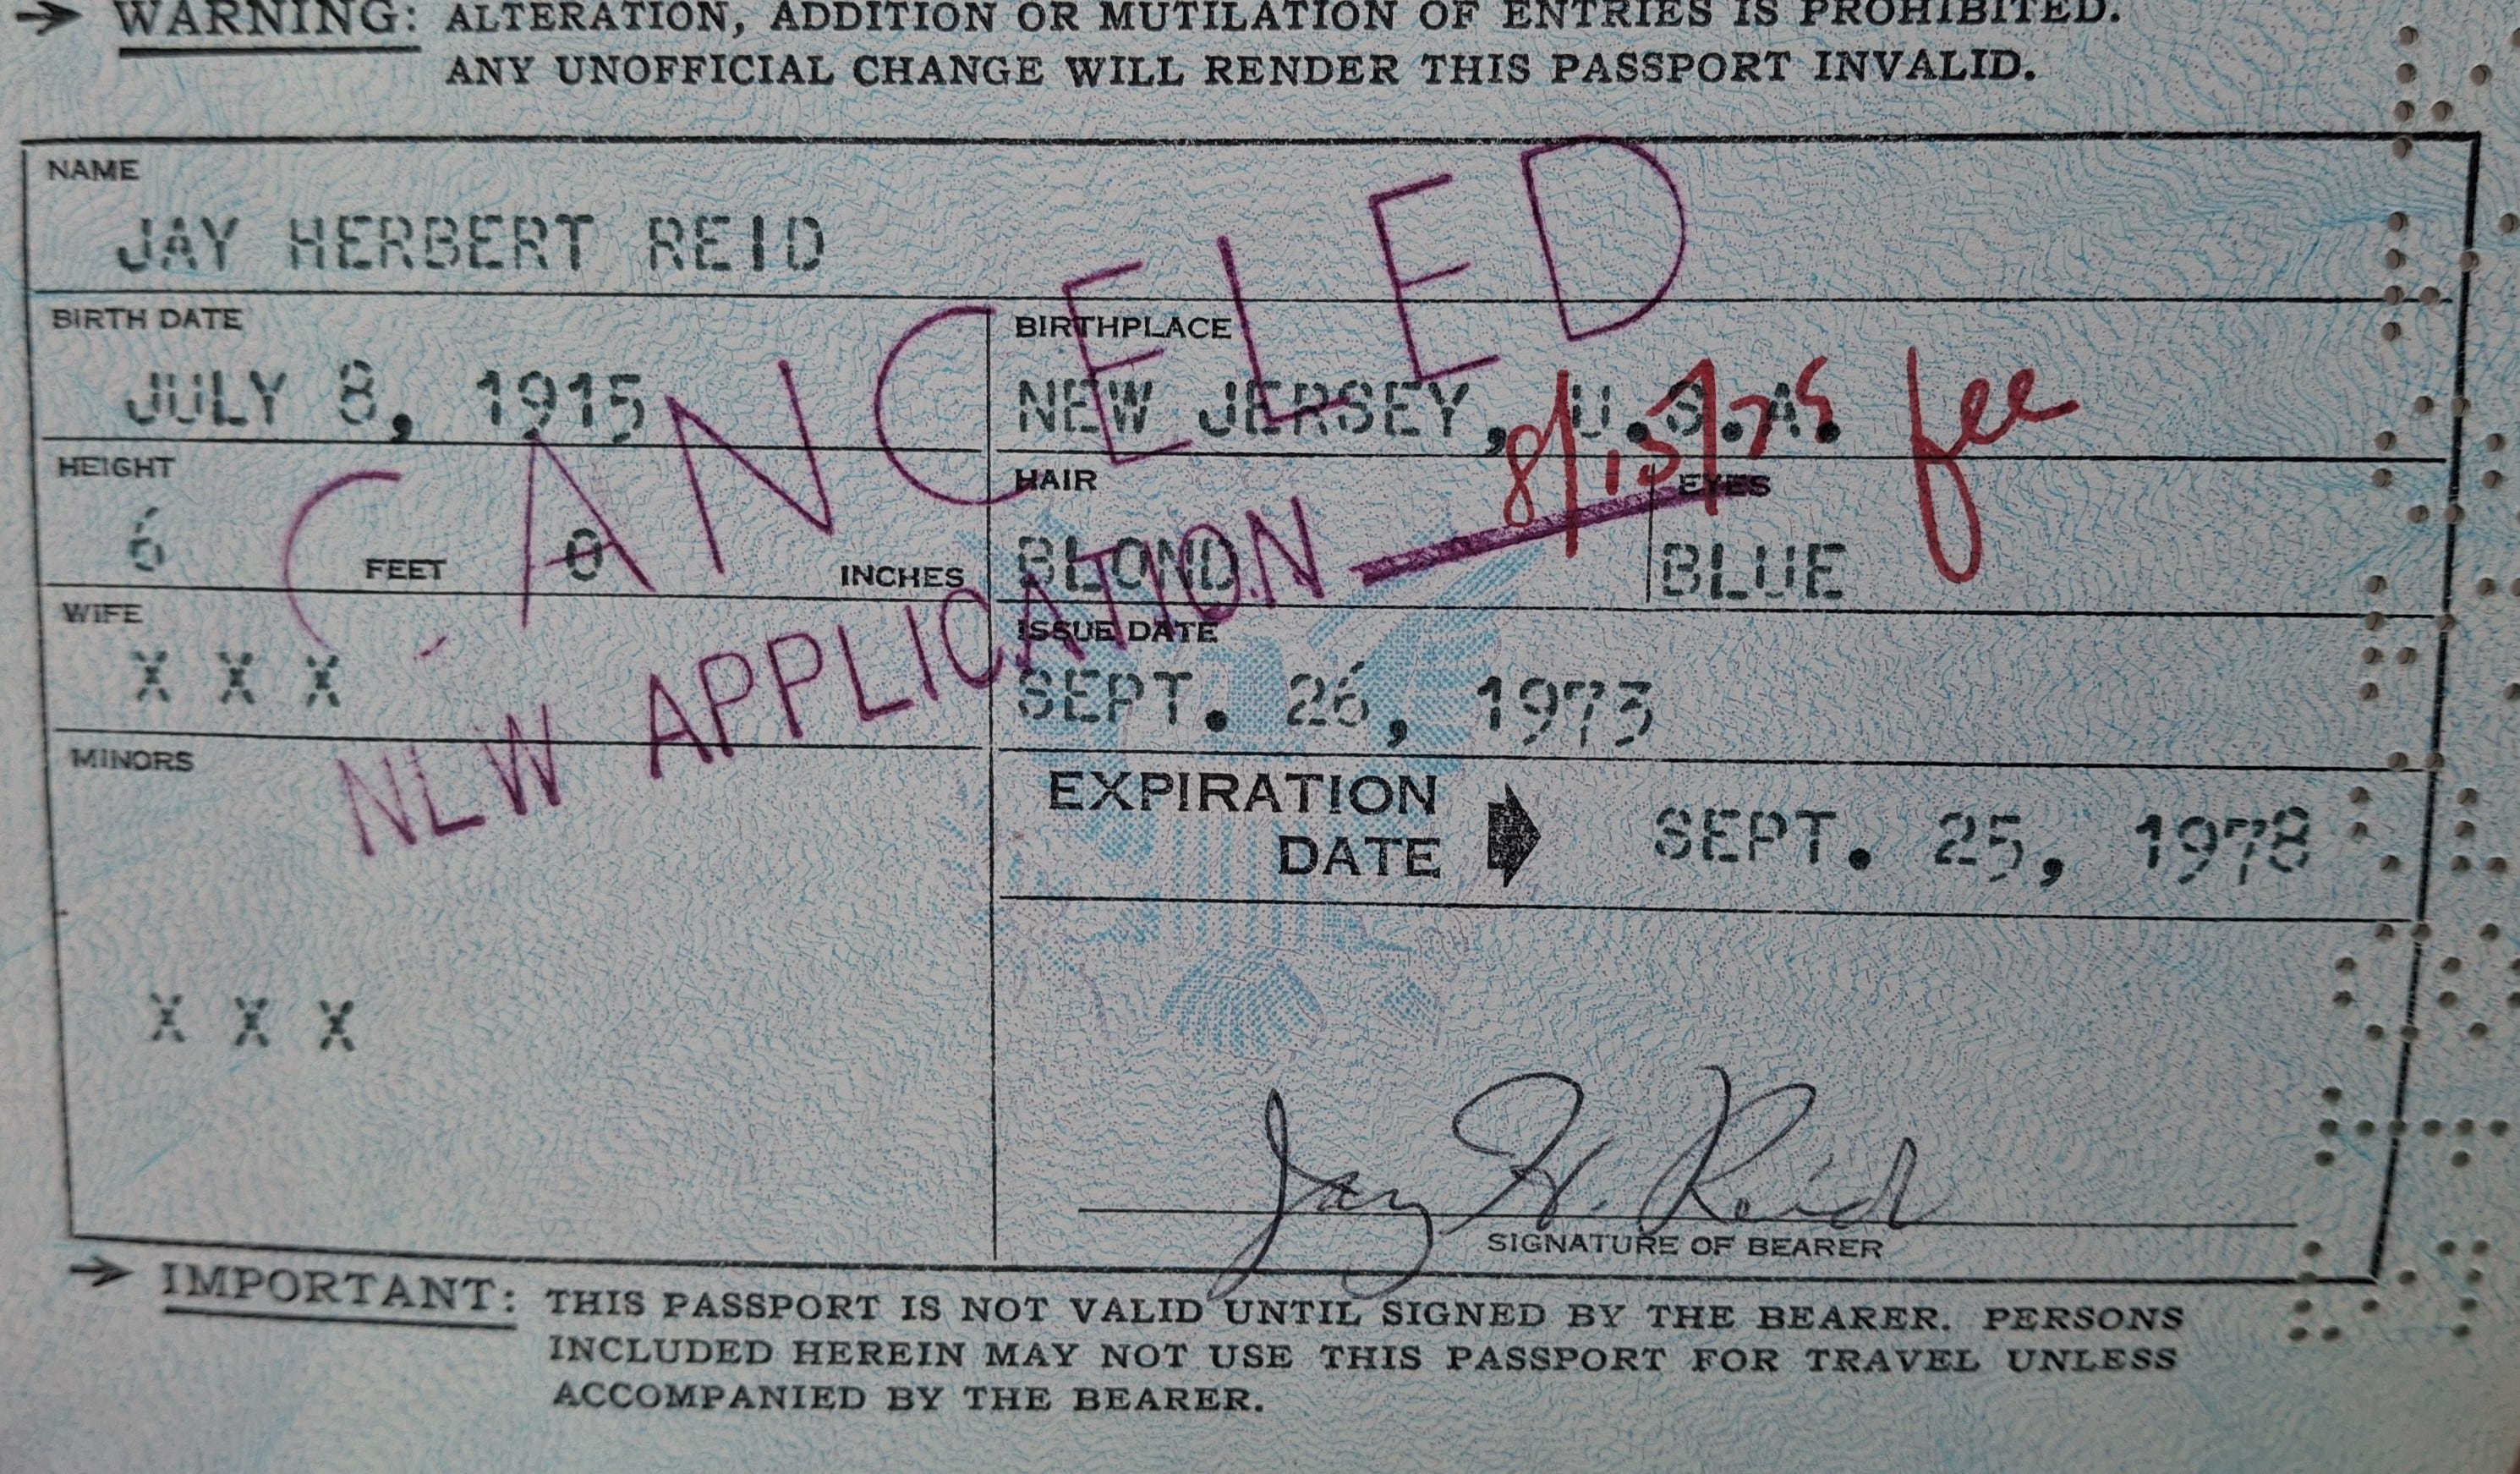 → WARNING: ALTERATION, ADDITION OR MUTILATION OF ENTRIES IS PROHIBITED.
ANY UNOFFICIAL CHANGE WILL RENDER THIS PASSPORT INVALID.
NAME
JAY HERBERT REID
BIRTH DATE
JULY 8, 1915
BIRTHPLACE
NEW JERSEY, U.S.A.
HEIGHT
6 FEET 0 INCHES
HAIR
BLOND
EYES
BLUE
WIFE
X X X
ISSUE DATE
SEPT. 26, 1973
MINORS
X X X
EXPIRATION
DATE
SEPT. 25, 1978
CANCELED
NEW APPLICATION
fee
Jay H. Reid
SIGNATURE OF BEARER
→ IMPORTANT: THIS PASSPORT IS NOT VALID UNTIL SIGNED BY THE BEARER. PERSONS
INCLUDED HEREIN MAY NOT USE THIS PASSPORT FOR TRAVEL UNLESS
ACCOMPANIED BY THE BEARER.